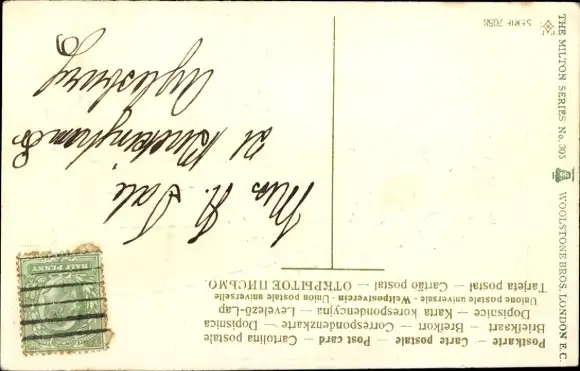 Postkarte — Carte postale — Post card — Cartolina postale
Briefkaart — Brefkort — Correspondenzkarte — Dopisnica
Dopisnice — Karta korespondencyjna — Levelező-Lap
Unione postale universale - Weltpostverein - Union postale universelle
Tarjeta postal — Cartão postal — ОТКРЫТОЕ ПИСЬМО.
HALF PENNY
Mrs H. Dale
21 Buckingham St
Aylesbury
THE MILTON SERIES No. 305 WOOLSTONE BROS., LONDON E.C.
SERIE 705B